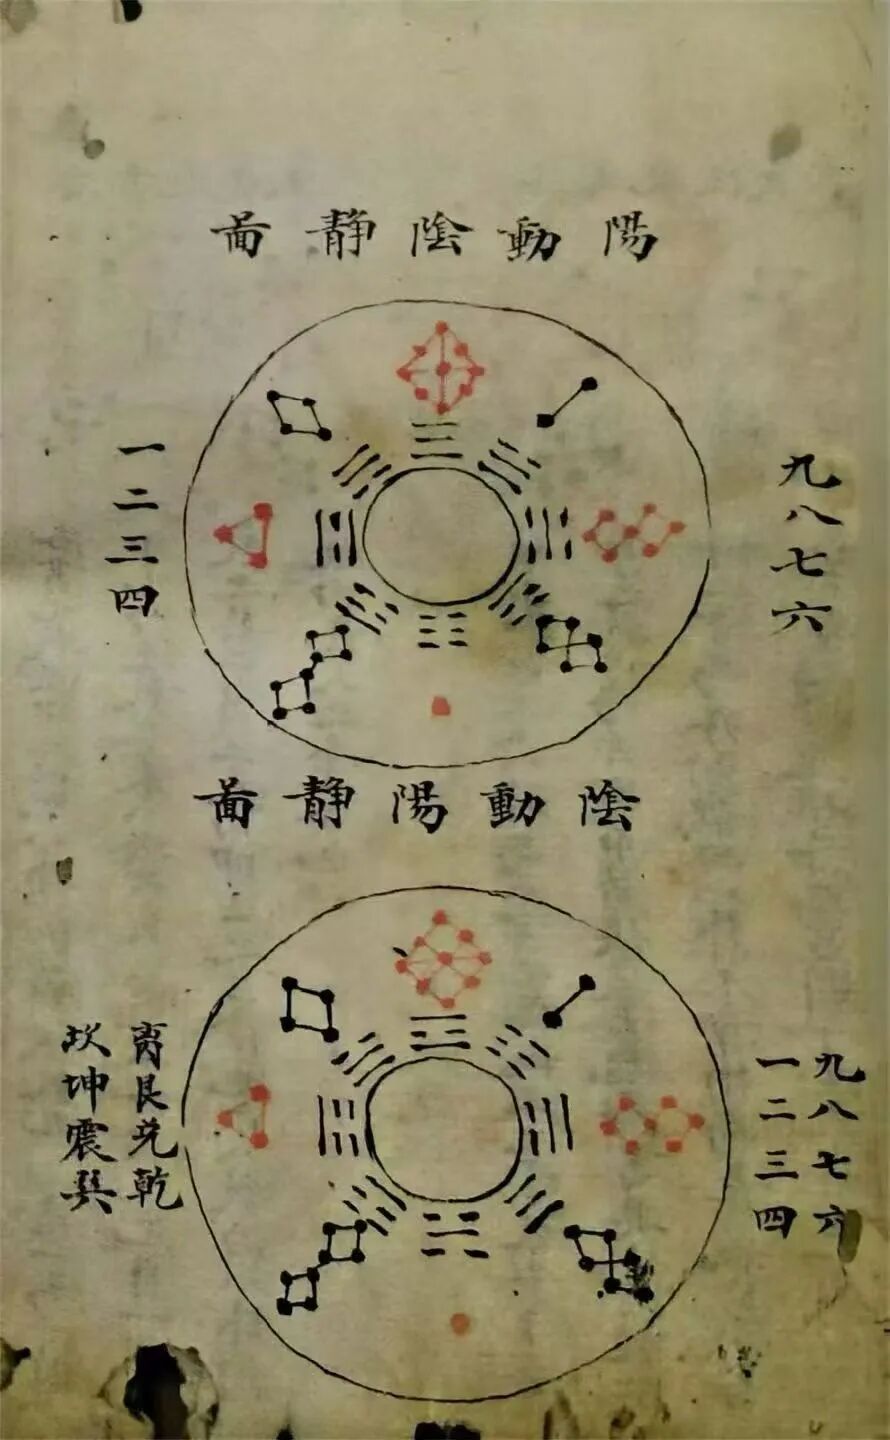 陽動陰靜啚
九八七六
一二三四
陰動陽靜啚
九八七六
一二三四
离艮兑乾
坎坤震巽